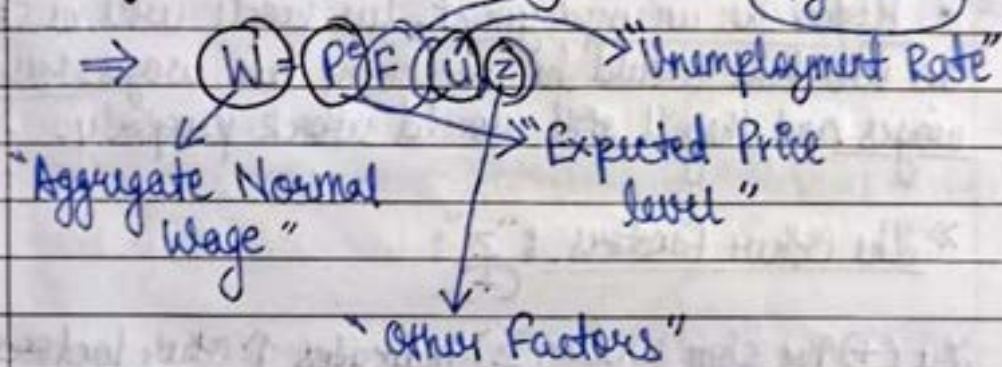 ⇒ W = Pᵉ F (u, z) "Unemployment Rate"
"Expected Price
level"
"Aggregate Normal
Wage"
"Other Factors"